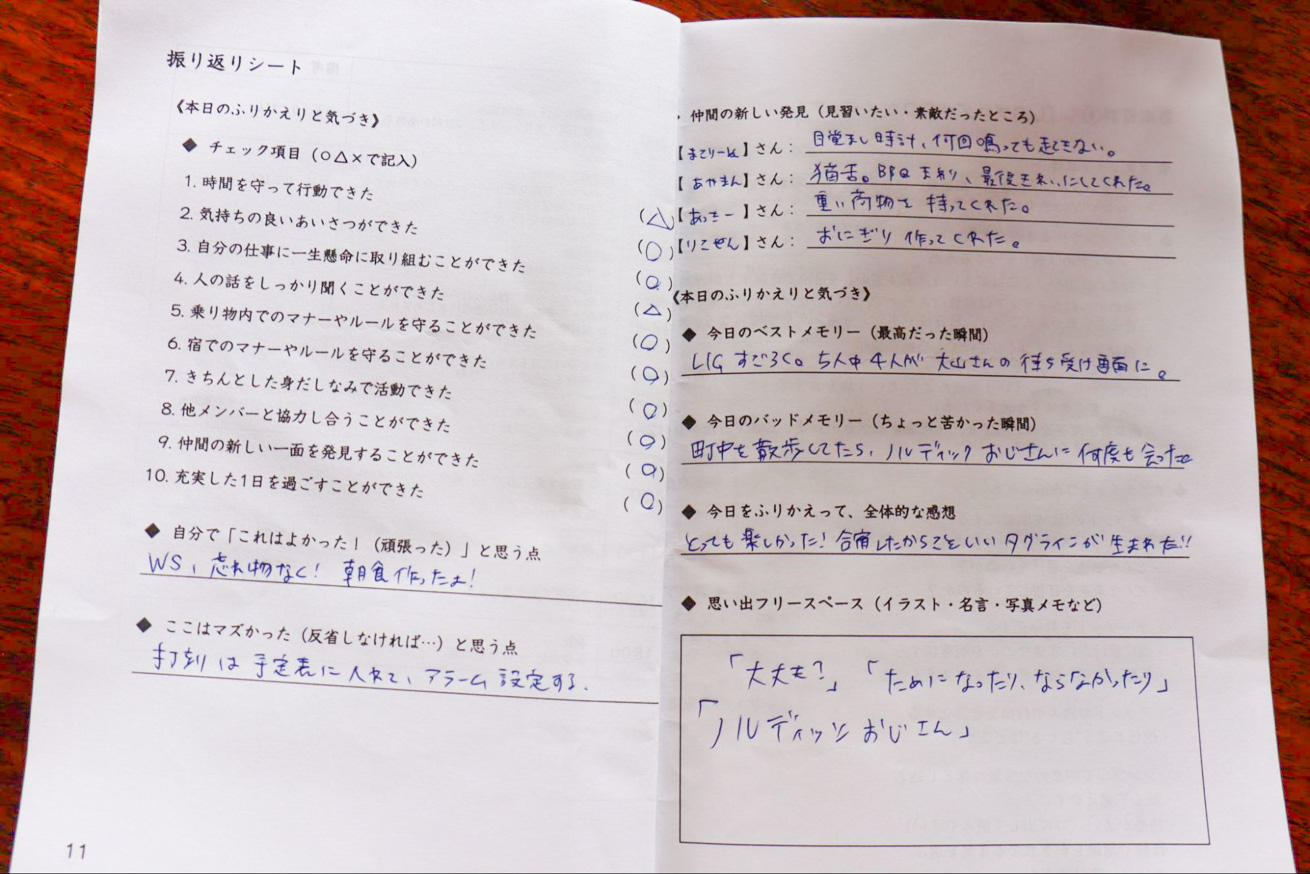 振り返りシート
《本日のふりかえりと気づき》
◆ チェック項目（○△×で記入）
1. 時間を守って行動できた （△）
2. 気持ちの良いあいさつができた （○）
3. 自分の仕事に一生懸命に取り組むことができた （○）
4. 人の話をしっかり聞くことができた （△）
5. 乗り物内でのマナーやルールを守ることができた （○）
6. 宿でのマナーやルールを守ることができた （○）
7. きちんとした身だしなみで活動できた （○）
8. 他メンバーと協力し合うことができた （○）
9. 仲間の新しい一面を発見することができた （○）
10. 充実した1日を過ごすことができた （○）
◆ 自分で「これはよかった！（頑張った）」と思う点
WS、忘れ物なく！ 朝食作ったよ！
◆ ここはマズかった（反省しなければ…）と思う点
打刻は予定表に入れて、アラーム設定する.
11
仲間の新しい発見（見習いたい・素敵だったところ）
【まてりーぬ】さん： 目覚まし時計、何回鳴っても起きない。
【あやまん】さん： 猫舌。即日まわり、最後きれいにしてくれた。
【あっきー】さん： 重い荷物を持ってくれた。
【りこぜん】さん： おにぎり作ってくれた。
《本日のふりかえりと気づき》
◆ 今日のベストメモリー（最高だった瞬間）
LIGすごろく。5人中4人が大山さんの待ち受け画面に。
◆ 今日のバッドメモリー（ちょっと苦かった瞬間）
町中を散歩してたら、ノルディックおじさんに何度も会った。
◆ 今日をふりかえって、全体的な感想
とっても楽しかった！合宿したからこそいいタグラインが生まれた!!
◆ 思い出フリースペース（イラスト・名言・写真メモなど）
「大丈夫？」「ためになったり、ならなかったり」
「ノルディックおじさん」